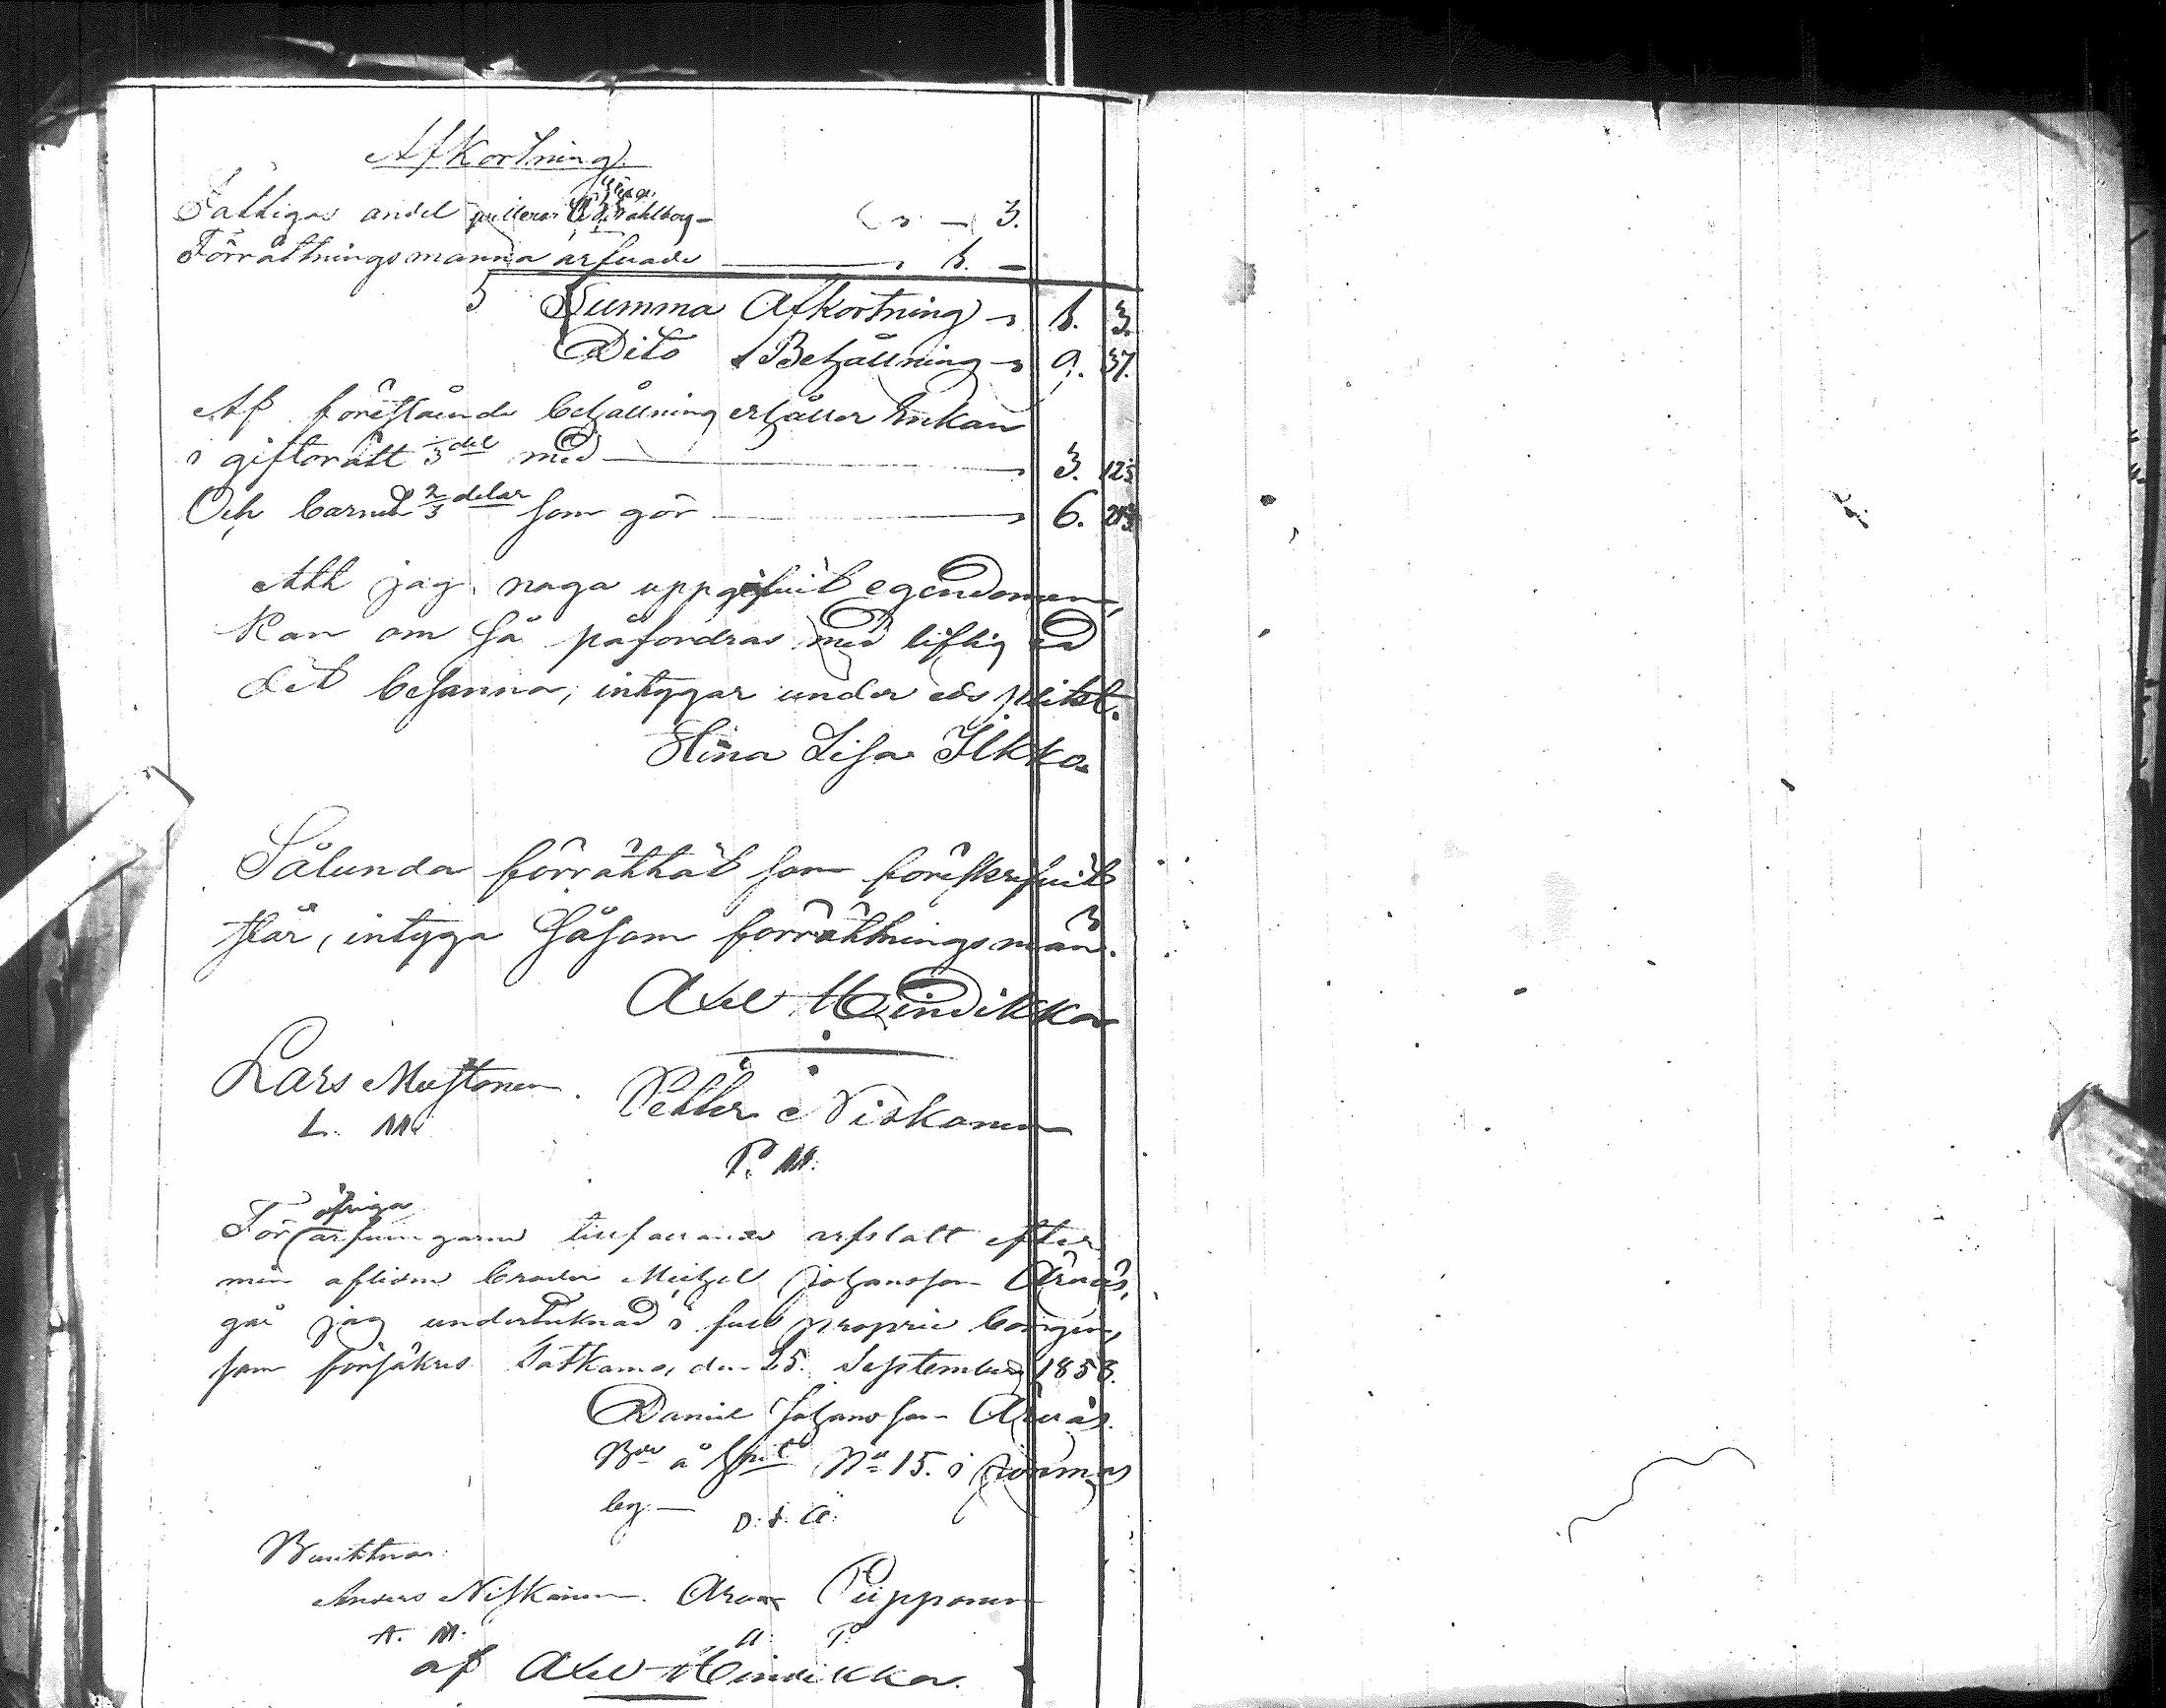 Afkortning
Fattigas andel qvitterar Stina Wahlberg — " — 3.
Förrättningsmanna arfvode — " 1. —
Summa Afkortning " 1. 3.
Dito Behållning " 9. 37.
Af förestående behållning erhåller Enkan
i giftorätt 1/3 del med — " 3. 12 1/3
Och barnen 2/3 delar som gör — " 6. 24 2/3
Att jag noga uppgifvit egendomen,
kan om så påfordras med liflig ed
det besanna, intygar under eds plikt.
Stina Lisa Ilkka
Sålunda förrättat som föreskrifvit
står, intyga såsom förrättningsmän.
Axel Heindikka
Lars Mustonen. Petter Niskanen
L. M. P. M.
För öfriga arfvingarne tillfallande arfslott efter
min aflidne broder Michel Johansson Ärväs,
går jag undertecknad i full proprie borgen,
som försäkras. Sotkamo, den 25. September 1858.
Daniel Johansson Ärväs.
Bde å Sk.tt No 15. i Jormas
by — D. J. Ä.
Bevittnar:
Anders Niskanen. Aron Piipponen
A. M. A. P.
af Axel Heindikka.